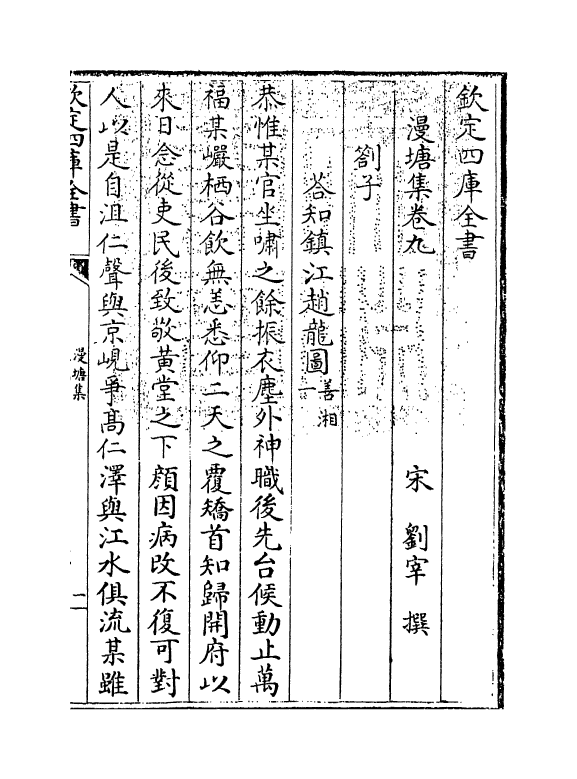 欽定四庫全書
漫塘集卷九
宋 劉宰 撰
劄子
荅知鎮江趙龍圖善湘一
恭惟某官坐嘯之餘振衣塵外神職後先台候動止萬
福某巖栖谷飲無恙悉仰二天之覆矯首知歸開府以
來日念從吏民後致敬黃堂之下顔因病改不復可對
人以是自沮仁聲與京峴爭高仁澤與江水俱流某雖
欽定四庫全書
漫塘集